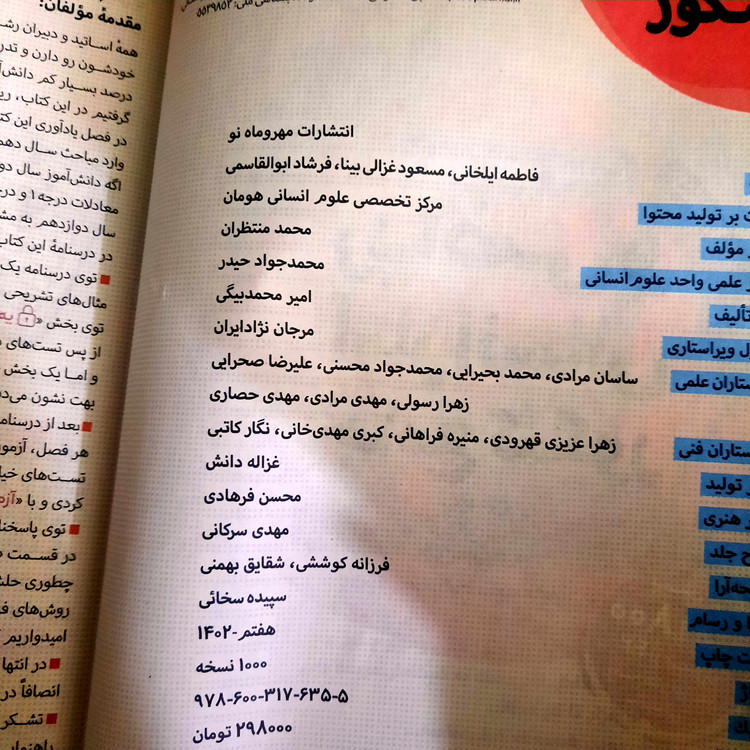 کور
۵۵۲۹۸۵۲
انتشارات مهروماه نو
فاطمه ایلخانی، مسعود غزالی بینا، فرشاد ابوالقاسمی
بر تولید محتوا
مرکز تخصصی علوم انسانی هومان
مؤلف
محمد منتظران
علمی واحد علوم انسانی
محمدجواد حیدر
تألیف
امیر محمدبیگی
ویراستاری
مرجان نژادایران
ستاران علمی
ساسان مرادی، محمد بحیرایی، محمدجواد محسنی، علیرضا صحرایی
زهرا رسولی، مهدی مرادی، مهدی حصاری
ستاران فنی
زهرا عزیزی قهرودی، منیره فراهانی، کبری مهدی‌خانی، نگار کاتبی
تولید
غزاله دانش
هنری
محسن فرهادی
جلد
مهدی سرکانی
حه‌آرا
فرزانه کوششی، شقایق بهمنی
و رسام
سپیده سخائی
چاپ
هفتم-۱۴۰۲
۱۰۰۰ نسخه
۹۷۸-۶۰۰-۳۱۷-۶۳۵-۵
۲۹۸۰۰۰ تومان
مقدمهٔ مؤلفان:
همهٔ اساتید و دبیران
خودشون رو دارن و
درصد بسیار کم
گرفتیم در این کتاب،
در فصل یادآوری این
وارد مباحث سال
اگه دانش‌آموز سال
معادلات درجه ۱ و
سال دوازدهم به
در درسنامهٔ این کتاب
توی درسنامه یک
مثال‌های تشریحی
توی بخش «
از پس تست‌های
و اما یک بخش
بهت نشون
بعد از درسنامه
هر فصل،
تست‌های
کردی و با «
توی
در قسمت
چطوری
روش‌های
امیدواریم
در انتها
انصافاً در
تشکر